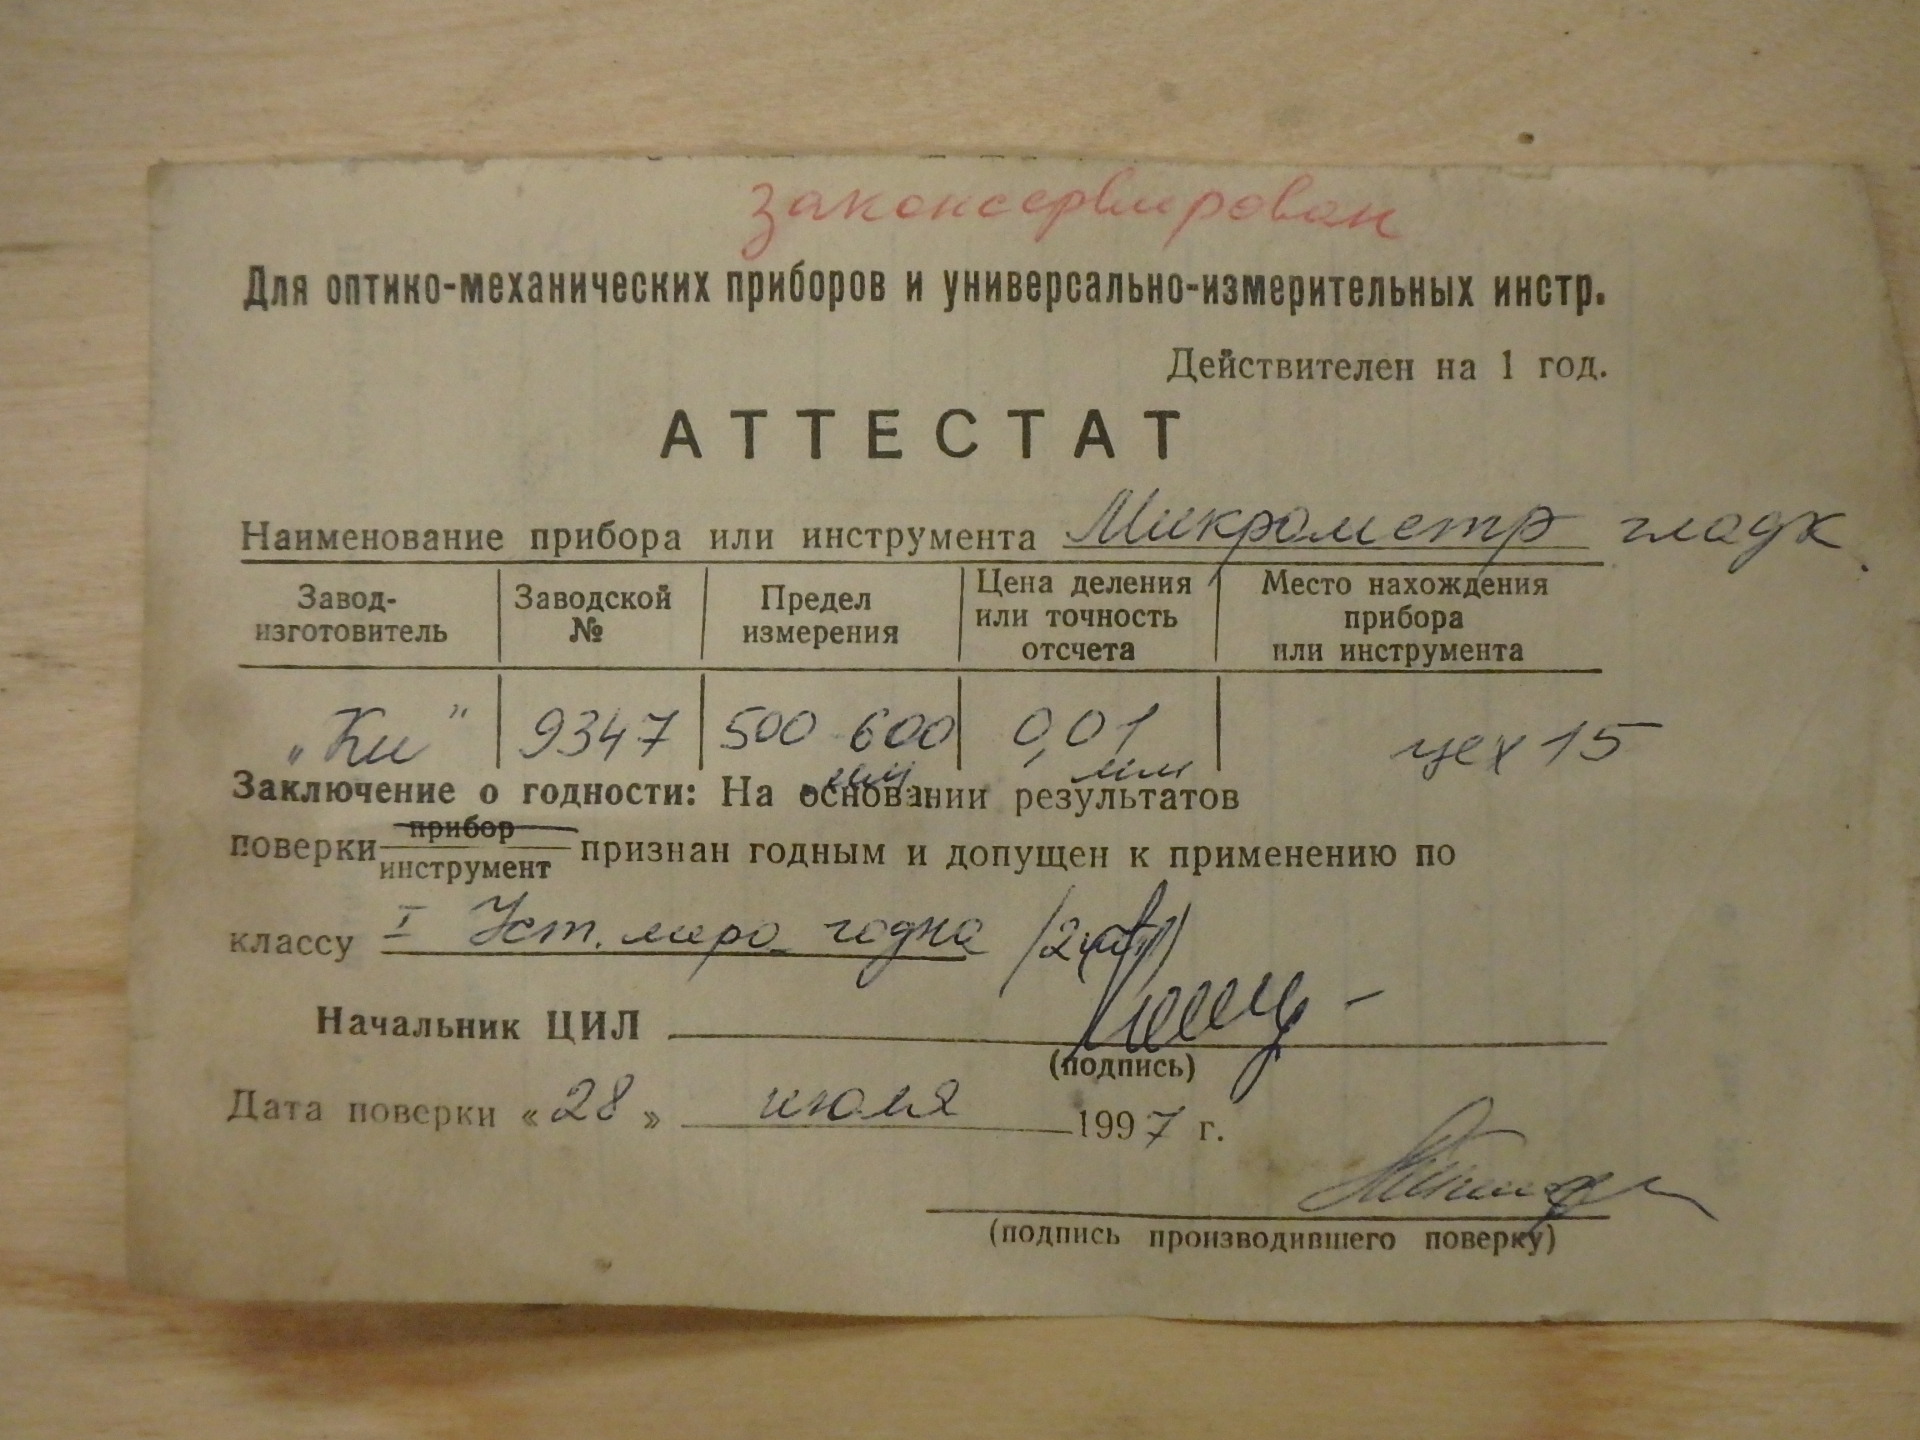 законсервирован
Для оптико-механических приборов и универсально-измерительных инстр.
Действителен на 1 год.
АТТЕСТАТ
Наименование прибора или инструмента Микрометр гладк.
Завод-изготовитель Заводской № Предел измерения Цена деления или точность отсчета Место нахождения прибора или инструмента
„Ки” 9347 500 600 мм 0,01 мм цех 15
Заключение о годности: На основании результатов
поверки прибор
инструмент признан годным и допущен к применению по
классу I Уст. мера годна
Начальник ЦИЛ
(подпись)
Дата поверки «28» июля 1997 г.
(подпись производившего поверку)